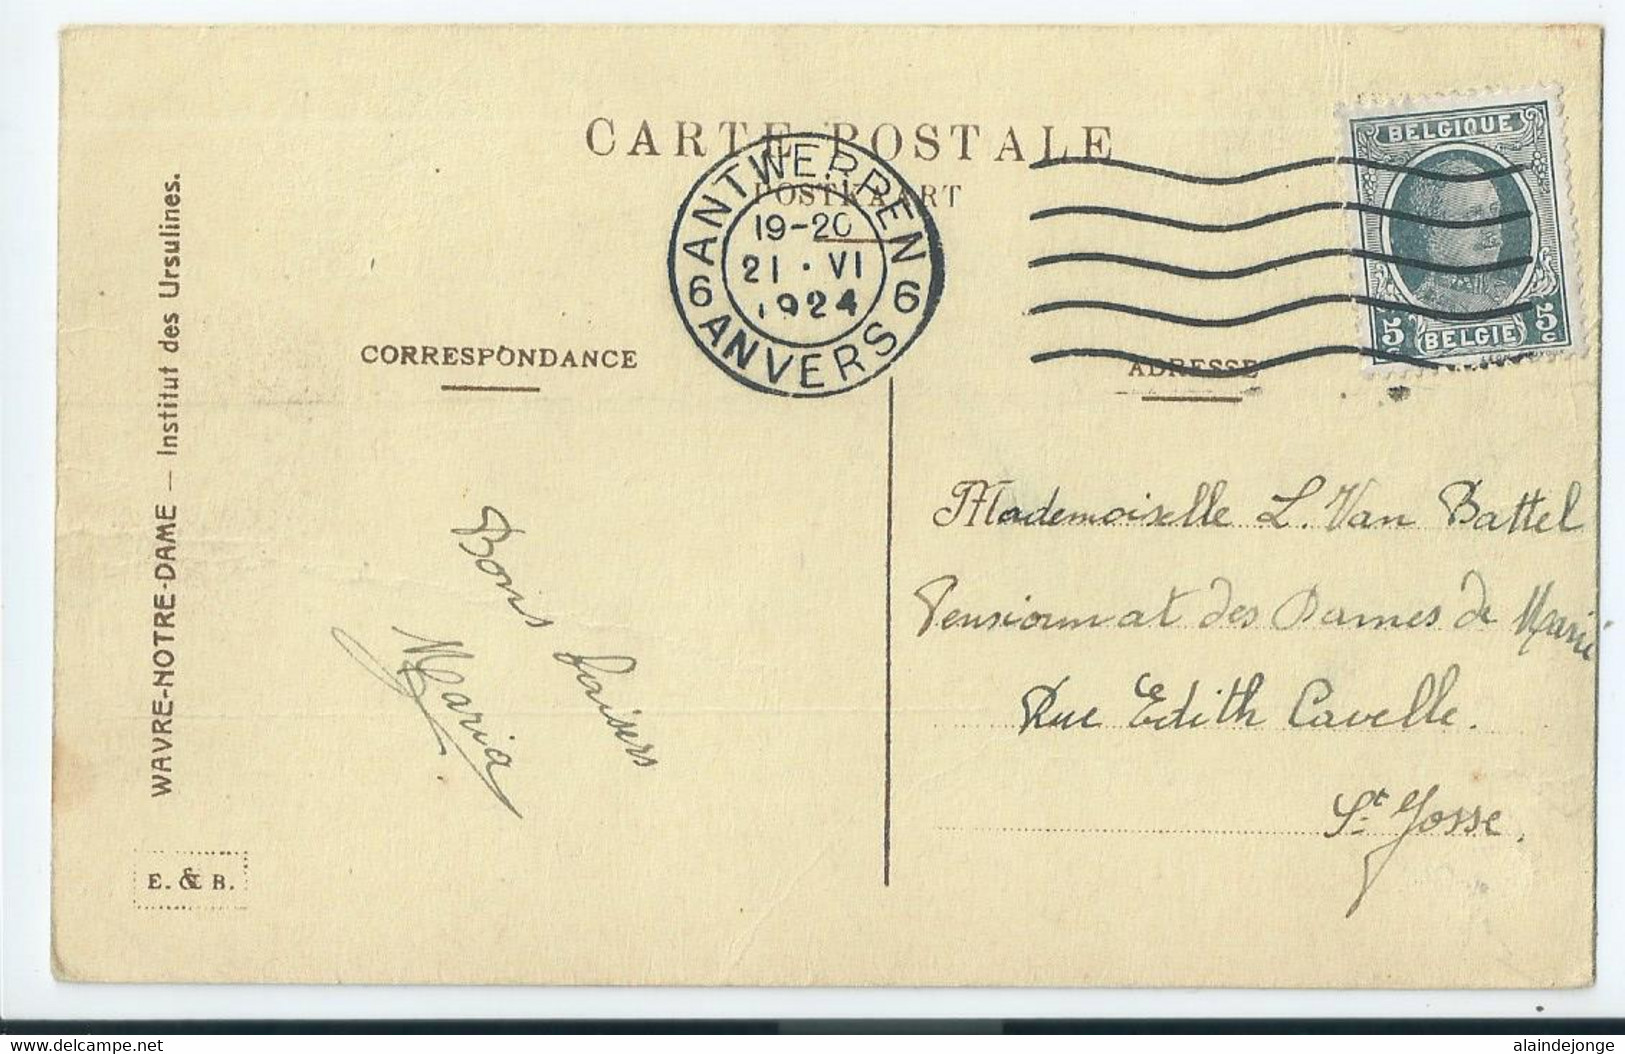 CARTE POSTALE
POSTKAART
ANTWERPEN
19-20
21 · VI
1924
6 6
ANVERS
BELGIQUE
5c 5c
BELGIE
CORRESPONDANCE
ADRESSE
WAVRE-NOTRE-DAME — Institut des Ursulines.
E. & B.
Bons baisers
Maria
Mademoiselle L. Van Battel
Pensionnat des Dames de Marie
Rue Edith Cavelle.
St. Josse,
www.delcampe.net
alaindejonge